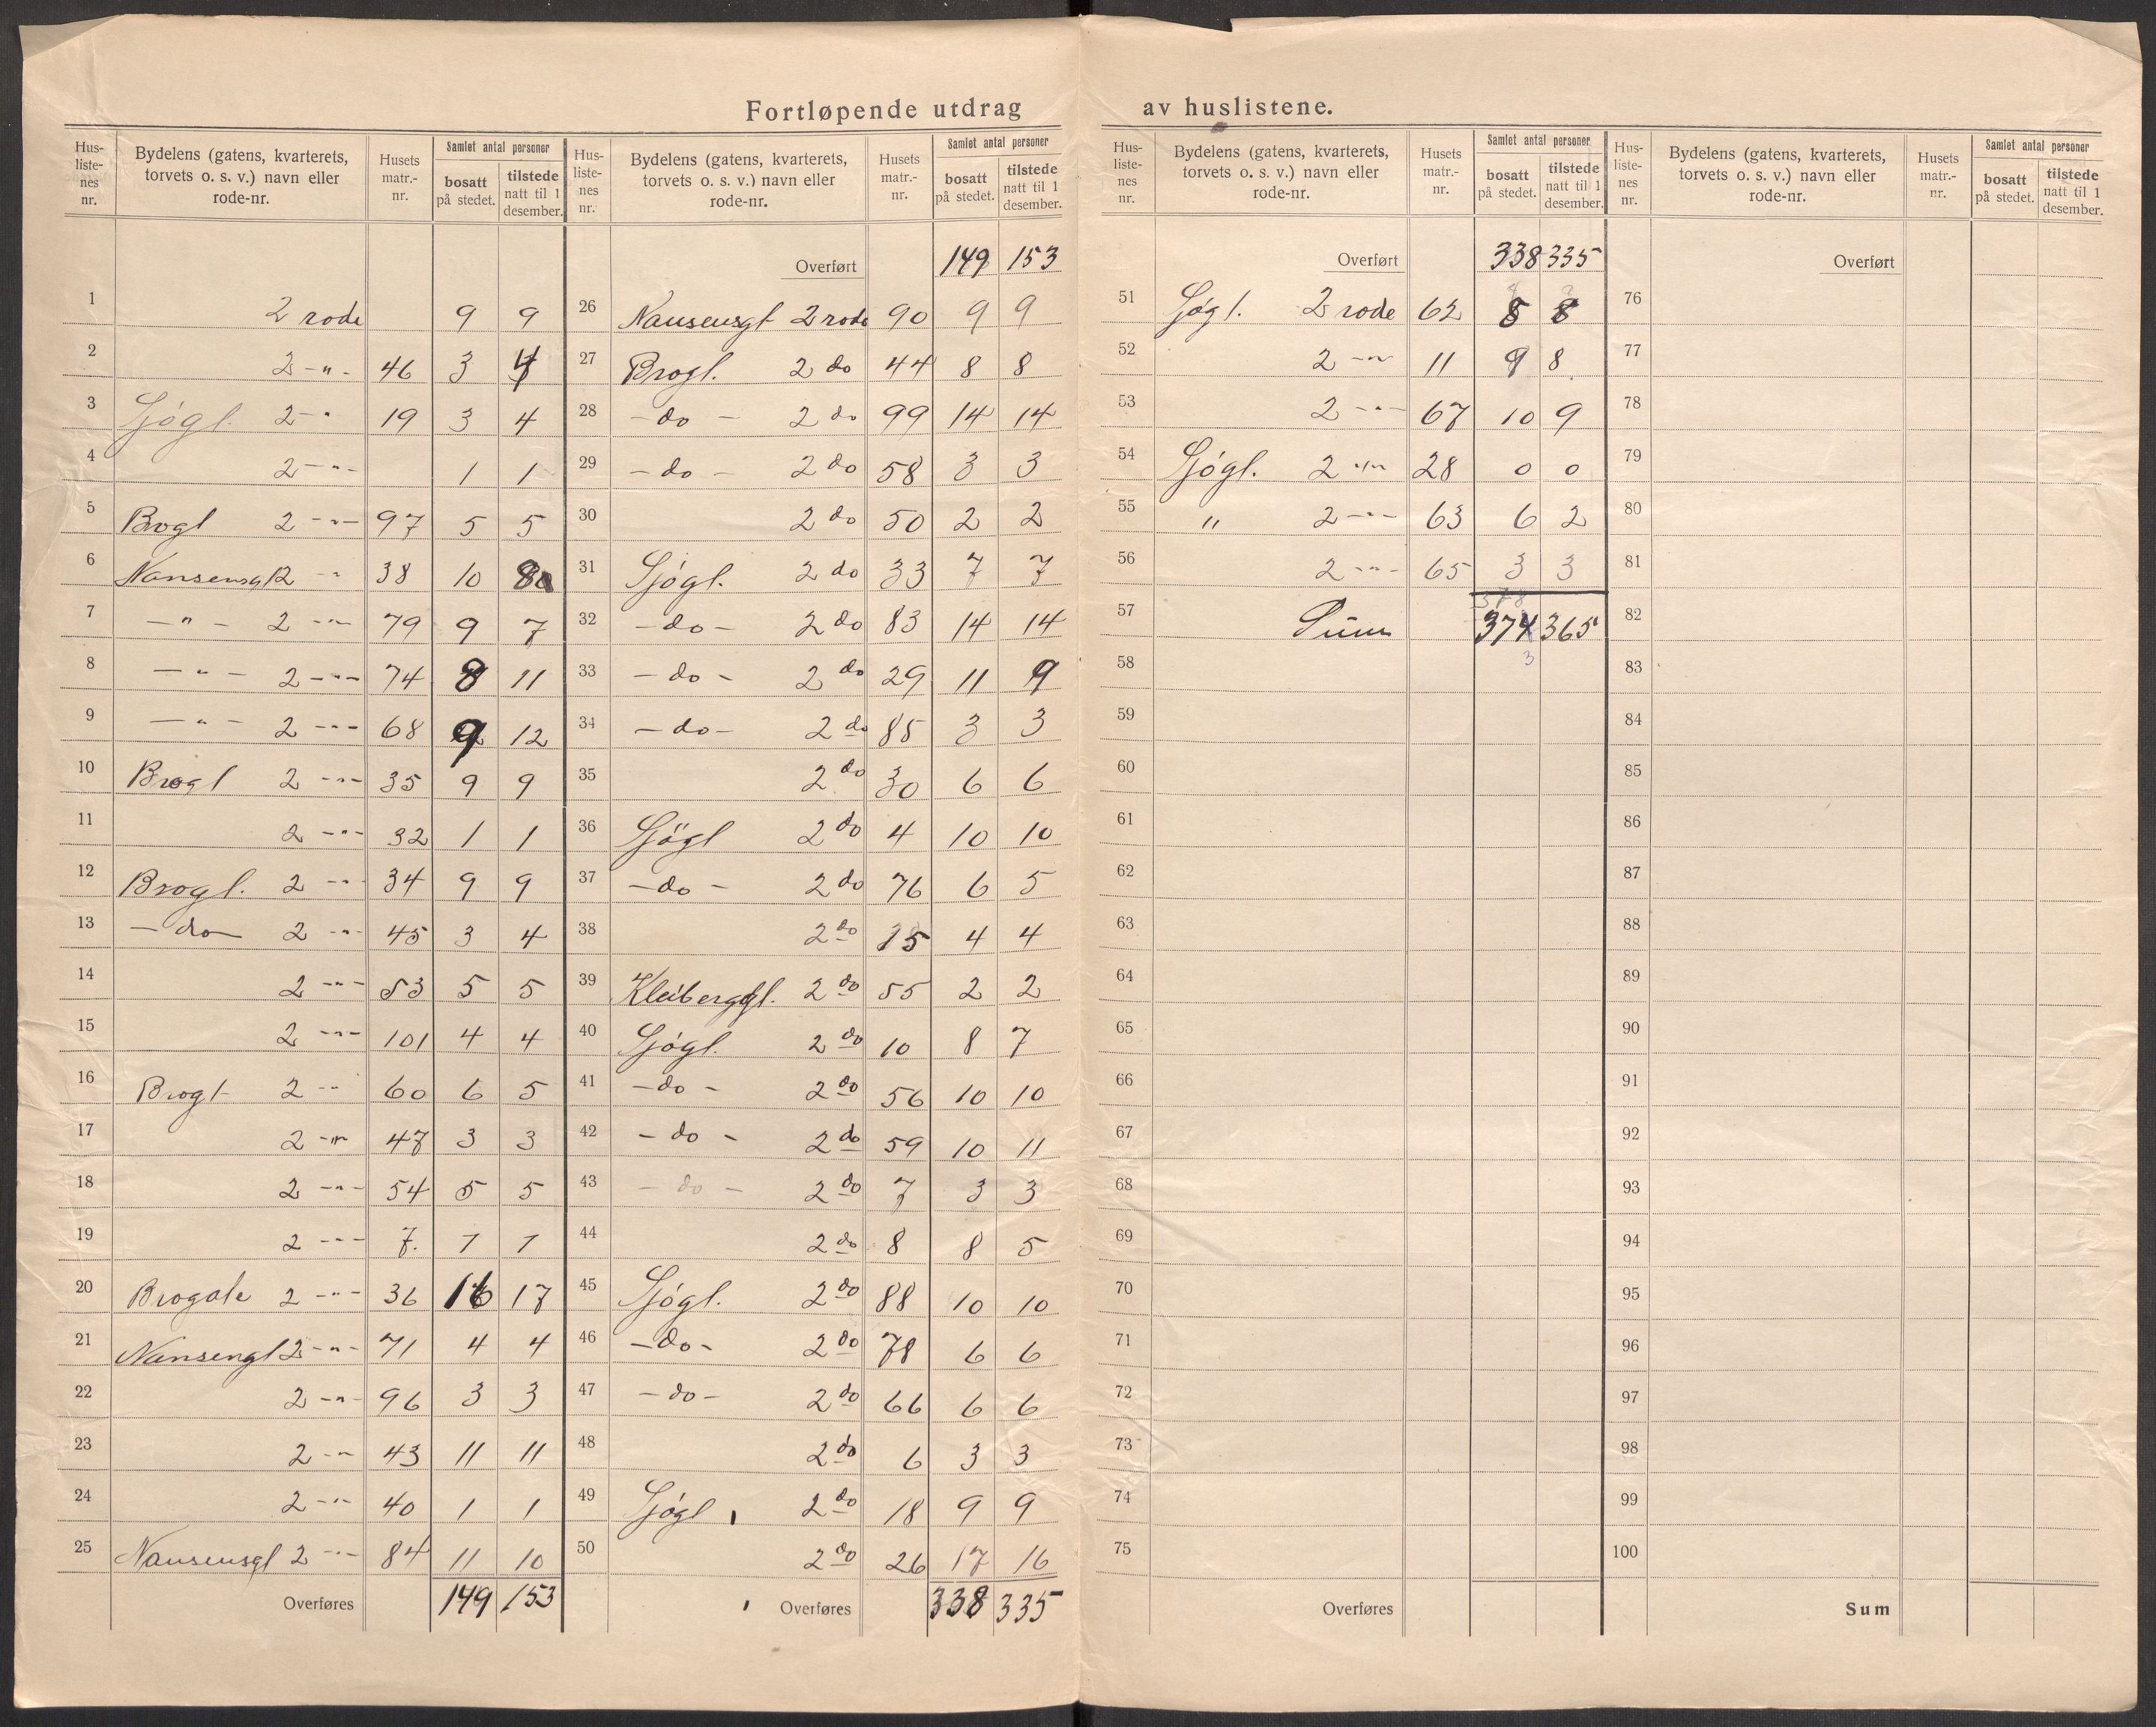 Fortløpende utdrag av huslistene.
Hus-liste-nes nr. | Bydelens (gatens, kvarterets, torvets o. s. v.) navn eller rode-nr. | Husets matr.-nr. | Samlet antal personer | bosatt på stedet. | tilstede natt til 1 desember.
1 2 rode 9 9
2 2 -"- 46 3 4
3 Sjøgt. 2 -" 19 3 4
4 2 -"- 1 1
5 Brogt 2 -"- 97 5 5
6 Nansensgt 2 -"- 38 10 8
7 -"- 2 -"- 79 9 7
8 -"- 2 -"- 74 8 11
9 -"- 2 -"- 68 9 12
10 Brogt 2 -"- 35 9 9
11 2 -"- 32 1 1
12 Brogt. 2 -"- 34 9 9
13 -do- 2 -"- 45 3 4
14 2 -"- 53 5 5
15 2 -"- 101 4 4
16 Brogt 2 -"- 60 6 5
17 2 -"- 47 3 3
18 2 -"- 54 5 5
19 2 -"- 7. 1 1
20 Brogate 2 -"- 36 16 17
21 Nansengt 2 -"- 71 4 4
22 2 -"- 96 3 3
23 2 -"- 43 11 11
24 2 -"- 40 1 1
25 Nansensgt 2 -"- 84 11 10
Overføres 149 153
Hus-liste-nes nr. | Bydelens (gatens, kvarterets, torvets o. s. v.) navn eller rode-nr. | Husets matr.-nr. | Samlet antal personer | bosatt på stedet. | tilstede natt til 1 desember.
Overført 149 153
26 Nansensgt 2 rode 90 9 9
27 Brogt. 2 do 44 8 8
28 -do- 2 do 99 14 14
29 -do- 2 do 58 3 3
30 2 do 50 2 2
31 Sjøgt. 2 do 33 7 7
32 -do- 2 do 83 14 14
33 -do- 2 do 29 11 9
34 -do- 2 do 85 3 3
35 2 do 30 6 6
36 Sjögt 2 do 4 10 10
37 -do- 2 do 76 6 5
38 2 do 15 4 4
39 Kleiberggt. 2 do 55 2 2
40 Sjøgt. 2 do 10 8 7
41 -do- 2 do 56 10 10
42 -do- 2 do 59 10 11
43 -do- 2 do 7 3 3
44 2 do 8 8 5
45 Sjøgt. 2 do 88 10 10
46 -do- 2 do 78 6 6
47 -do- 2 do 66 6 6
48 2 do 6 3 3
49 Sjøgt 2 do 18 9 9
50 2 do 26 17 16
Overføres 338 335
Hus-liste-nes nr. | Bydelens (gatens, kvarterets, torvets o. s. v.) navn eller rode-nr. | Husets matr.-nr. | Samlet antal personer | bosatt på stedet. | tilstede natt til 1 desember.
Overført 338 335
51 Sjøgt. 2 rode 62 8 8
52 2 -"- 11 9 8
53 2 -"- 67 10 9
54 Sjøgt. 2 -"- 28 0 0
55 " 2 -"- 63 6 2
56 2 -"- 65 3 3
378
57 Sum 374 365
3
58
59
60
61
62
63
64
65
66
67
68
69
70
71
72
73
74
75
Overføres
Hus-liste-nes nr. | Bydelens (gatens, kvarterets, torvets o. s. v.) navn eller rode-nr. | Husets matr.-nr. | Samlet antal personer | bosatt på stedet. | tilstede natt til 1 desember.
Overført
76
77
78
79
80
81
82
83
84
85
86
87
88
89
90
91
92
93
94
95
96
97
98
99
100
Sum